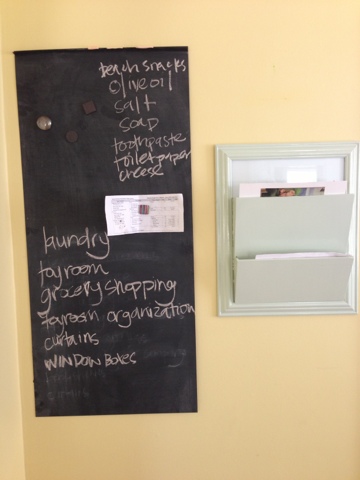 beach snacks
olive oil
salt
soap
toothpaste
toilet paper
cheese
laundry
toyroom
grocery shopping
toyroom organization
curtains
WINDOW BOXES